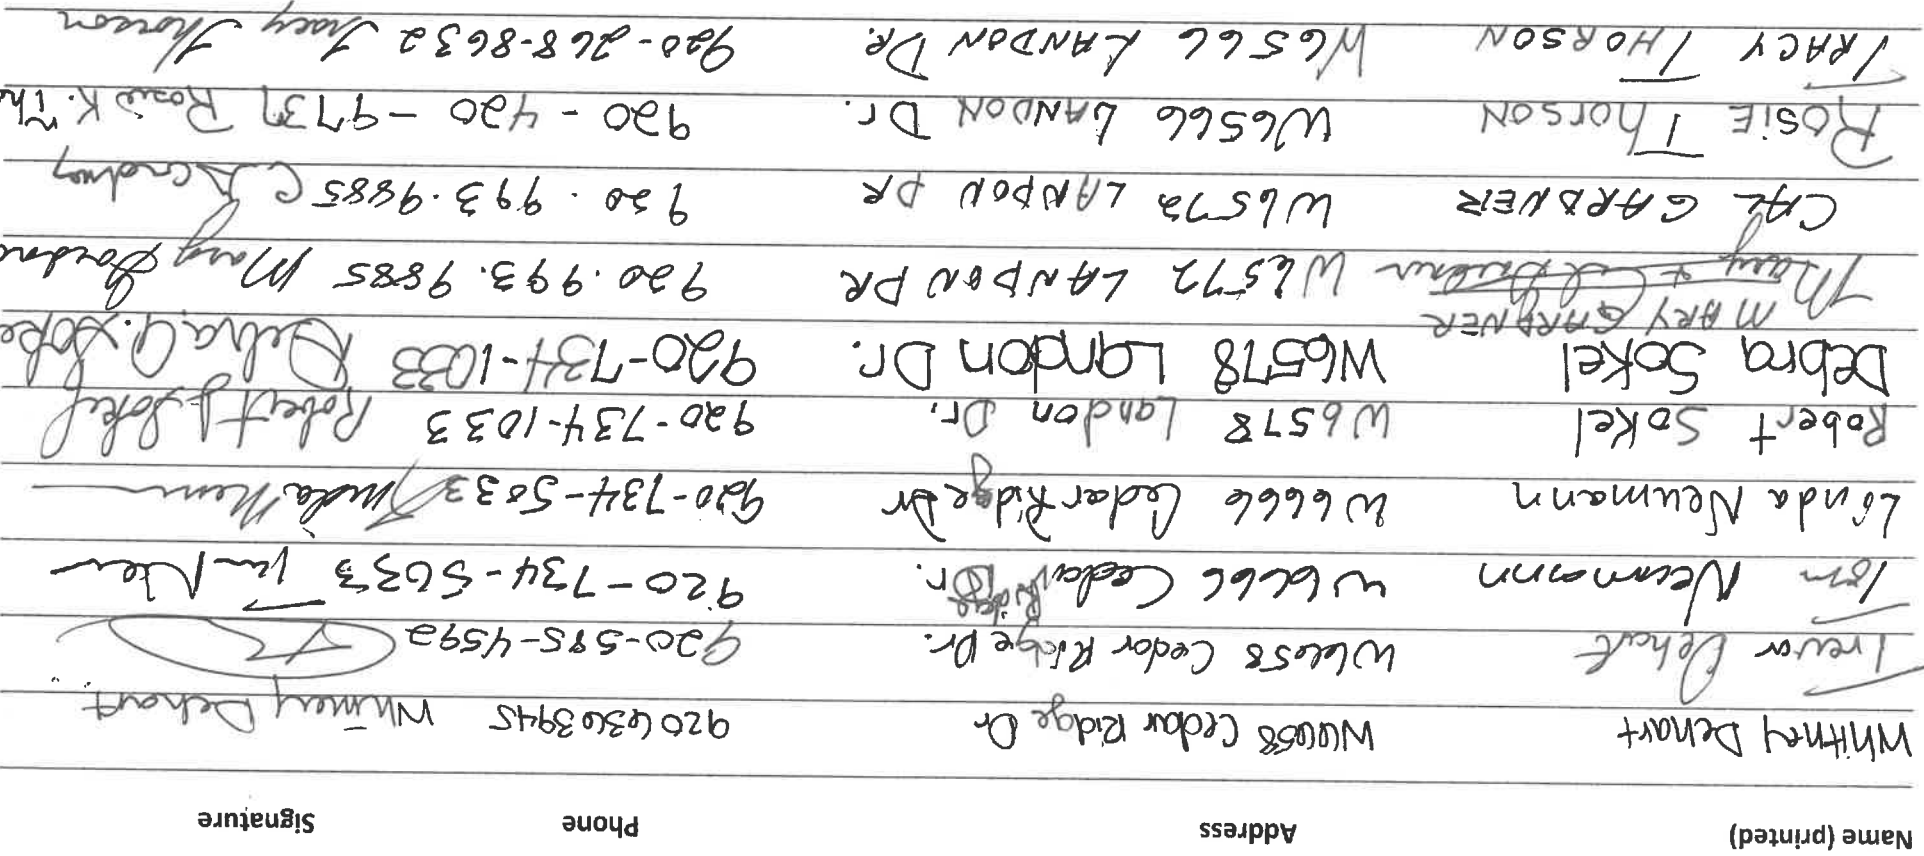 Name (printed) Address Phone Signature
Whitney Dehart W6658 Cedar Ridge Dr 9206303945 Whitney Dehart
Trevor Dehart W6658 Cedar Ridge Dr. 920-585-4592
Tom Neumann W6666 Cedar Ridge Dr. 920-734-5033
Linda Neumann W6666 Cedar Ridge Dr 920-734-5033 Linda
Robert Sokel W6578 Landon Dr. 920-734-1033 Robert J Sokel
Debra Sokel W6578 Landon Dr. 920-734-1033 Debra A. Sokel
MARY GARDNER
Mary & Cal Gardner W6572 LANDON DR 920.993.9885 Mary Gardne
CAL GARDNER W6572 LANDON DR 920.993.9885 C Gardner
ROSiE Thorson W6566 LANDON Dr. 920-420-9737 Rosie K. Tho
TRACY THORSON W6566 LANDON DR. 920-268-8632 Tracy Thorson